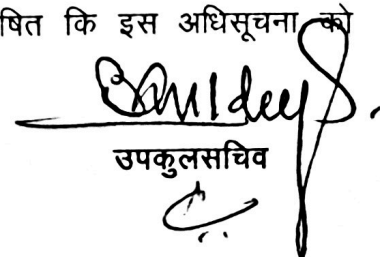 षित कि इस अधिसूचना को
उपकुलसचिव